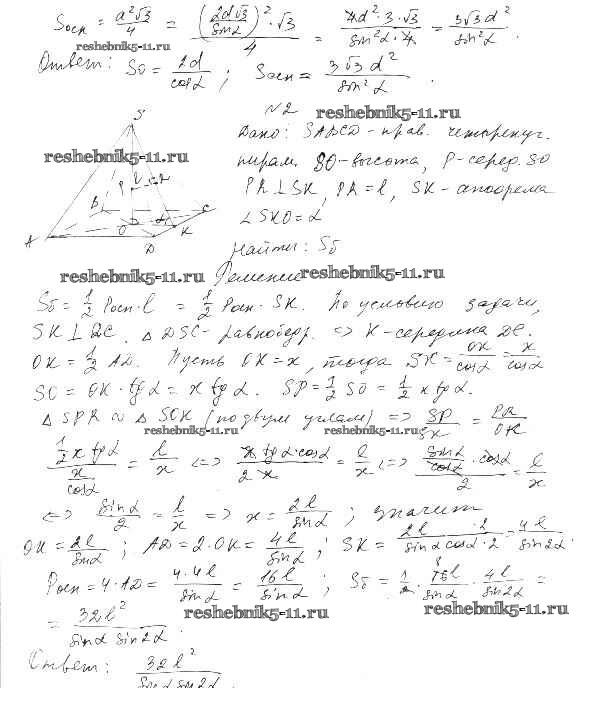 Sосн = a²√3/4 = (2d√3/sinα)²·√3/4 = 4d²·3·√3/sin²α·4 = 3√3d²/sin²α
reshebnik5-11.ru
Ответ: Sδ = 2d/cosα ; Sосн = 3√3d²/sin²α .
N2
reshebnik5-11.ru
Дано: SABCD - прав. четырехуг.
reshebnik5-11.ru
пирам. SO-высота, P-серед. SO
PR ⊥ SK, PR = l, SK - апофема
∠SKO = α
Найти: Sδ
S P R B C O K A D
reshebnik5-11.ru Решение reshebnik5-11.ru
Sδ = 1/2 Pосн·l = 1/2 Pосн·SK. По условию задачи,
SK ⊥ DC. △DSC - равнобедр. => K-середина DC.
OK = 1/2 AD. Пусть OK = x, тогда SK = OK/cosα = x/cosα
SO = OK·tgα = x tgα. SP = 1/2 SO = 1/2 x tgα.
△SPR ∾ △SOK (по двум углам) => SP/SK = PR/OK
reshebnik5-11.ru reshebnik5-11.ru
1/2 x tgα / x/cosα = l/x <=> x tgα·cosα/2x = l/x <=> sinα/cosα · cosα/2 = l/x
<=> sinα/2 = l/x => x = 2l/sinα ; значит
OK = 2l/sinα ; AD = 2·OK = 4l/sinα ; SK = 2l·2/sinα cosα·2 = 4l/sin2α.
Pосн = 4·AD = 4·4l/sinα = 16l/sinα ; Sδ = 1/2 · 16l/sinα · 4l/sin2α =
reshebnik5-11.ru reshebnik5-11.ru
= 32l²/sinα sin2α .
Ответ: 32l²/sinα sin2α .